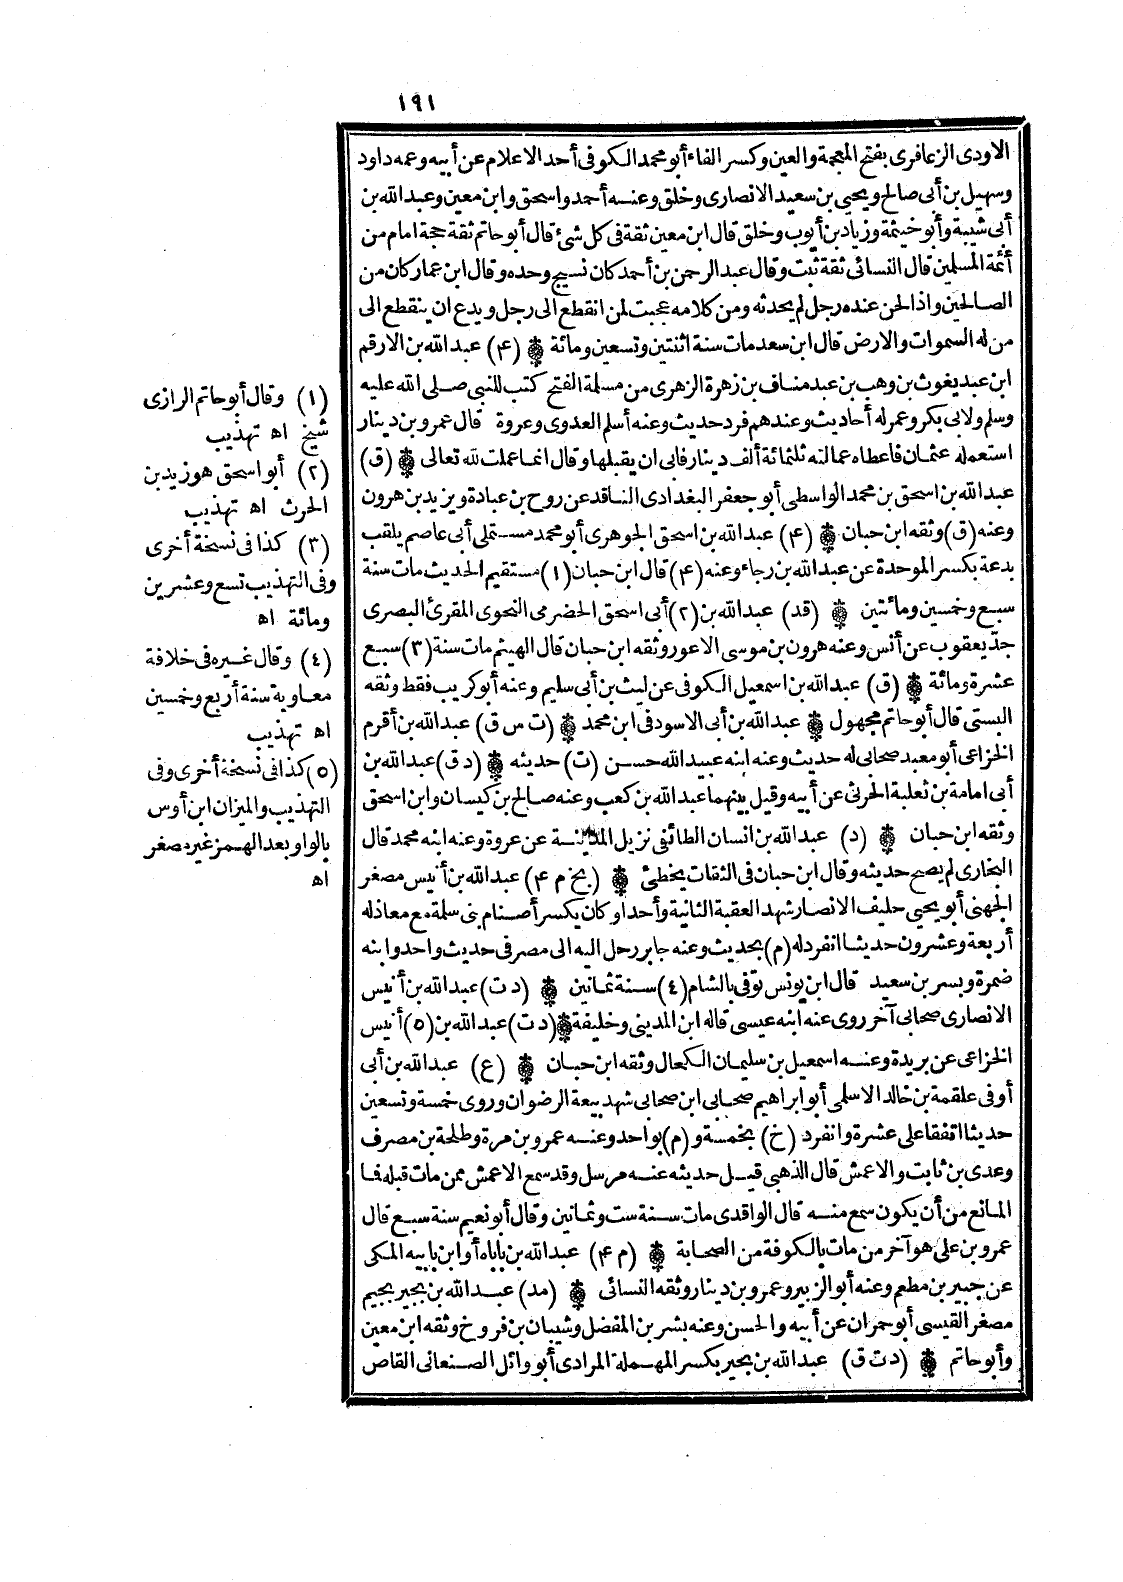 ١٩١
الاودى الزعافرى بفتح المعجمة والعين وكسر الفاء أبو محمد الكوفى أحد الاعلام عن أبيه وعمه داود
وسهيل بن أبى صالح ويحيى بن سعيد الانصارى وخلق وعنه أحمد واسحق وابن معين وعبد الله بن
أبى شيبة وأبو خيثمة وزياد بن أيوب وخلق قال ابن معين ثقة فى كل شئ قال أبو حاتم ثقة حجة امام من
أئمة المسلمين قال النسائى ثقة ثبت وقال عبد الرحمن بن أحمد كان نسيج وحده وقال ابن عمار كان من
الصالحين واذا لحن عنده رجل لم يحدثه ومن كلامه عجبت لمن انقطع الى رجل ويدع ان ينقطع الى
من له السموات والارض قال ابن سعد مات سنة اثنتين وتسعين ومائة ۞ (٤) عبد الله بن الارقم
ابن عبد يغوث بن وهب بن عبد مناف بن زهرة الزهرى من مسلمة الفتح كتب للنبى صلى الله عليه
وسلم ولابى بكر وعمر له أحاديث وعندهم فرد حديث وعنه أسلم العدوى وعروة قال عمرو بن دينار
استعمله عثمان فاعطاه عمالته ثلثمائة ألف دينار فابى ان يقبلها وقال انما عملت لله تعالى ۞ (ق)
عبد الله بن اسحق بن محمد الواسطى أبو جعفر البغدادى الناقد عن روح بن عبادة ويزيد بن هرون
وعنه (ق) وثقه ابن حبان ۞ (٤) عبد الله بن اسحق الجوهرى أبو محمد مستملى أبى عاصم يلقب
بدعة بكسر الموحدة عن عبد الله بن رجاء وعنه (٤) قال ابن حبان (١) مستقيم الحديث مات سنة
سبع وخمسين ومائتين ۞ (قد) عبد الله بن (٢) أبى اسحق الحضرمى النحوى المقرئ البصرى
جد يعقوب عن أنس وعنه هرون بن موسى الاعور وثقه ابن حبان قال الهيثم مات سنة (٣) سبع
عشرة ومائة ۞ (ق) عبد الله بن اسمعيل الكوفى عن ليث بن أبى سليم وعنه أبو كريب فقط وثقه
البستى قال أبو حاتم مجهول ۞ عبد الله بن أبى الاسود فى ابن محمد ۞ (ت س ق) عبد الله بن أقرم
الخزاعى أبو معبد صحابى له حديث وعنه ابنه عبيد الله حسن (ت) حديثه ۞ (د ق) عبد الله بن
أبى امامة بن ثعلبة الحرثى عن أبيه وقيل بينهما عبد الله بن كعب وعنه صالح بن كيسان وابن اسحق
وثقه ابن حبان ۞ (د) عبد الله بن انسان الطائفى نزيل المدينة عن عروة وعنه ابنه محمد قال
البخارى لم يصح حديثه وقال ابن حبان فى الثقات يخطئ ۞ (بخ م ٤) عبد الله بن أنيس مصغر
الجهنى أبو يحيى حليف الانصار شهد العقبة الثانية وأحدا وكان يكسر أصنام بنى سلمة مع معاذ له
أربعة وعشرون حديثا انفرد له (م) بحديث وعنه جابر رحل اليه الى مصر فى حديث واحد وابنه
ضمرة وبسر بن سعيد قال ابن يونس توفى بالشام (٤) سنة ثمانين ۞ (د ت) عبد الله بن أنيس
الانصارى صحابى آخر روى عنه ابنه عيسى قاله ابن المدينى وخليفة ۞ (د ت) عبد الله بن (٥) أنيس
الخزاعى عن بريدة وعنه اسمعيل بن سليمان الكحال وثقه ابن حبان ۞ (ع) عبد الله بن أبى
أوفى علقمة بن خالد الاسلمى أبو ابراهيم صحابى ابن صحابى شهد بيعة الرضوان وروى خمسة وتسعين
حديثا اتفقا على عشرة وانفرد (خ) بخمسة و (م) بواحد وعنه عمرو بن مرة وطلحة بن مصرف
وعدى بن ثابت والاعمش قال الذهبى قيل حديثه عنه مرسل وقد سمع الاعمش ممن مات قبله فما
المانع من أن يكون سمع منه قال الواقدى مات سنة ست وثمانين وقال أبو نعيم سنة سبع قال
عمرو بن على هو آخر من مات بالكوفة من الصحابة ۞ (م ٤) عبد الله بن باباه أو ابن بابيه المكى
عن جبير بن مطعم وعنه أبو الزبير وعمرو بن دينار وثقه النسائى ۞ (مد) عبد الله بن بجير بجيم
مصغر القيسى أبو حمران عن أبيه والحسن وعنه بشر بن المفضل وشيبان بن فروخ وثقه ابن معين
وأبو حاتم ۞ (د ت ق) عبد الله بن بحير بكسر المهملة المرادى أبو وائل الصنعانى القاص
(١) وقال أبو حاتم الرازى
شيخ اه تهذيب
(٢) أبو اسحق هو زيد بن
الحرث اه تهذيب
(٣) كذا فى نسخة أخرى
وفى التهذيب تسع وعشرين
ومائة اه
(٤) وقال غيره فى خلافة
معاوية سنة أربع وخمسين
اه تهذيب
(٥) كذا فى نسخة أخرى وفى
التهذيب والميزان ابن أوس
بالواو بعد الهمز غير مصغر
اه